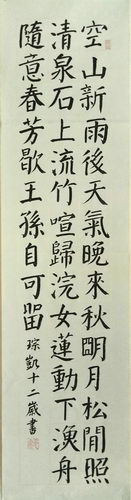 空山新雨後天氣晚來秋明月松間照
清泉石上流竹喧歸浣女蓮動下漁舟
隨意春芳歇王孫自可留
琮凱十二歲書